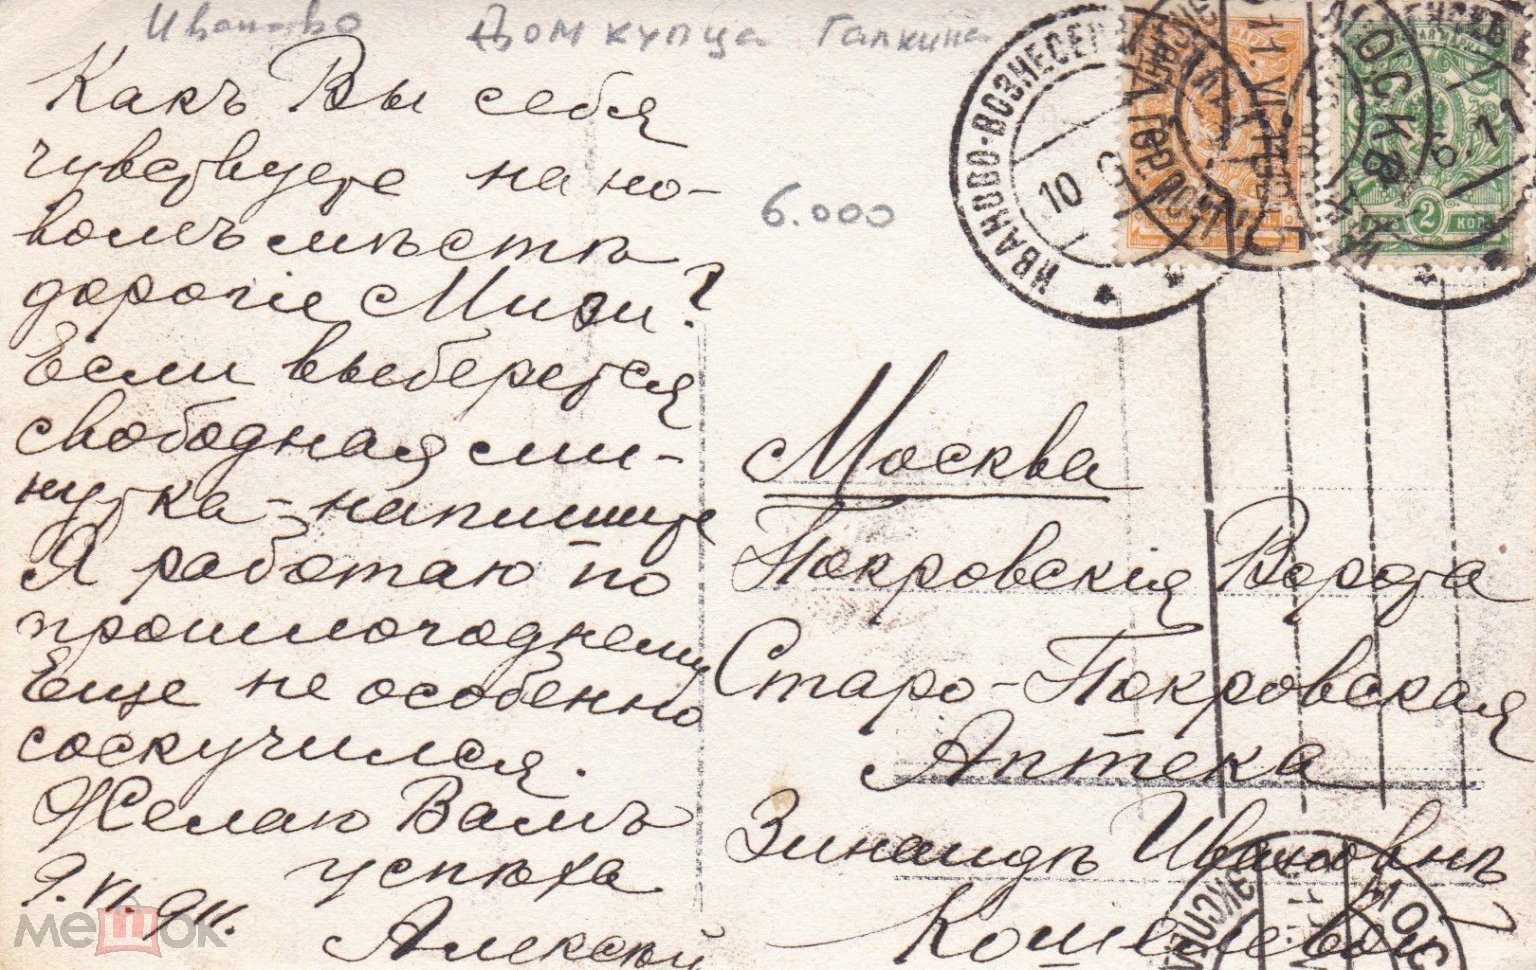 Иваново Дом купца Галкина
Какъ Вы себя
чувствуете на но-
вомъ мѣстѣ
дорогіе Мизи?
Если выберется
свободная ми-
нутка - напишите
Я работаю по
прошлогоднему
Еще не особенно
соскучился.
Желаю Вамъ
успѣха
9.VI.911.
Алексѣй
6.000
ИВАНОВО-ВОЗНЕСЕН
10
МОСКВА
6.11
2 КОП
Москва
Покровскія Ворота
Старо-Покровская
Аптека
Зинаидѣ Ивановнѣ
Кошелевой
МОС
мешок